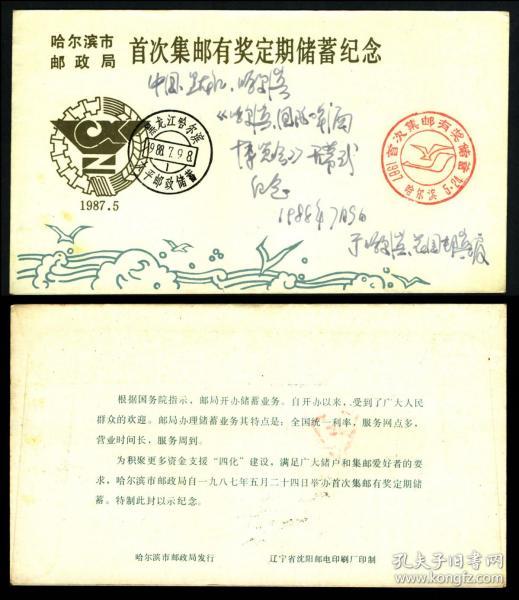 哈尔滨市
邮政局
首次集邮有奖定期储蓄纪念
中国 黑龙江 哈尔滨
1988年7月9日
纪念
黑龙江哈尔滨
1988.7.9.8
邮政储蓄
首次集邮有奖储蓄
1987 5.24
哈尔滨
1987.5
根据国务院指示，邮局开办储蓄业务。自开办以来，受到了广大人民
群众的欢迎。邮局办理储蓄业务其特点是：全国统一利率，服务网点多，
营业时间长，服务周到。
为积聚更多资金支援“四化”建设，满足广大储户和集邮爱好者的要
求，哈尔滨市邮政局自一九八七年五月二十四日举办首次集邮有奖定期储
蓄。特制此封以示纪念。
哈尔滨市邮政局发行
辽宁省沈阳邮电印刷厂印制
孔夫子旧书网